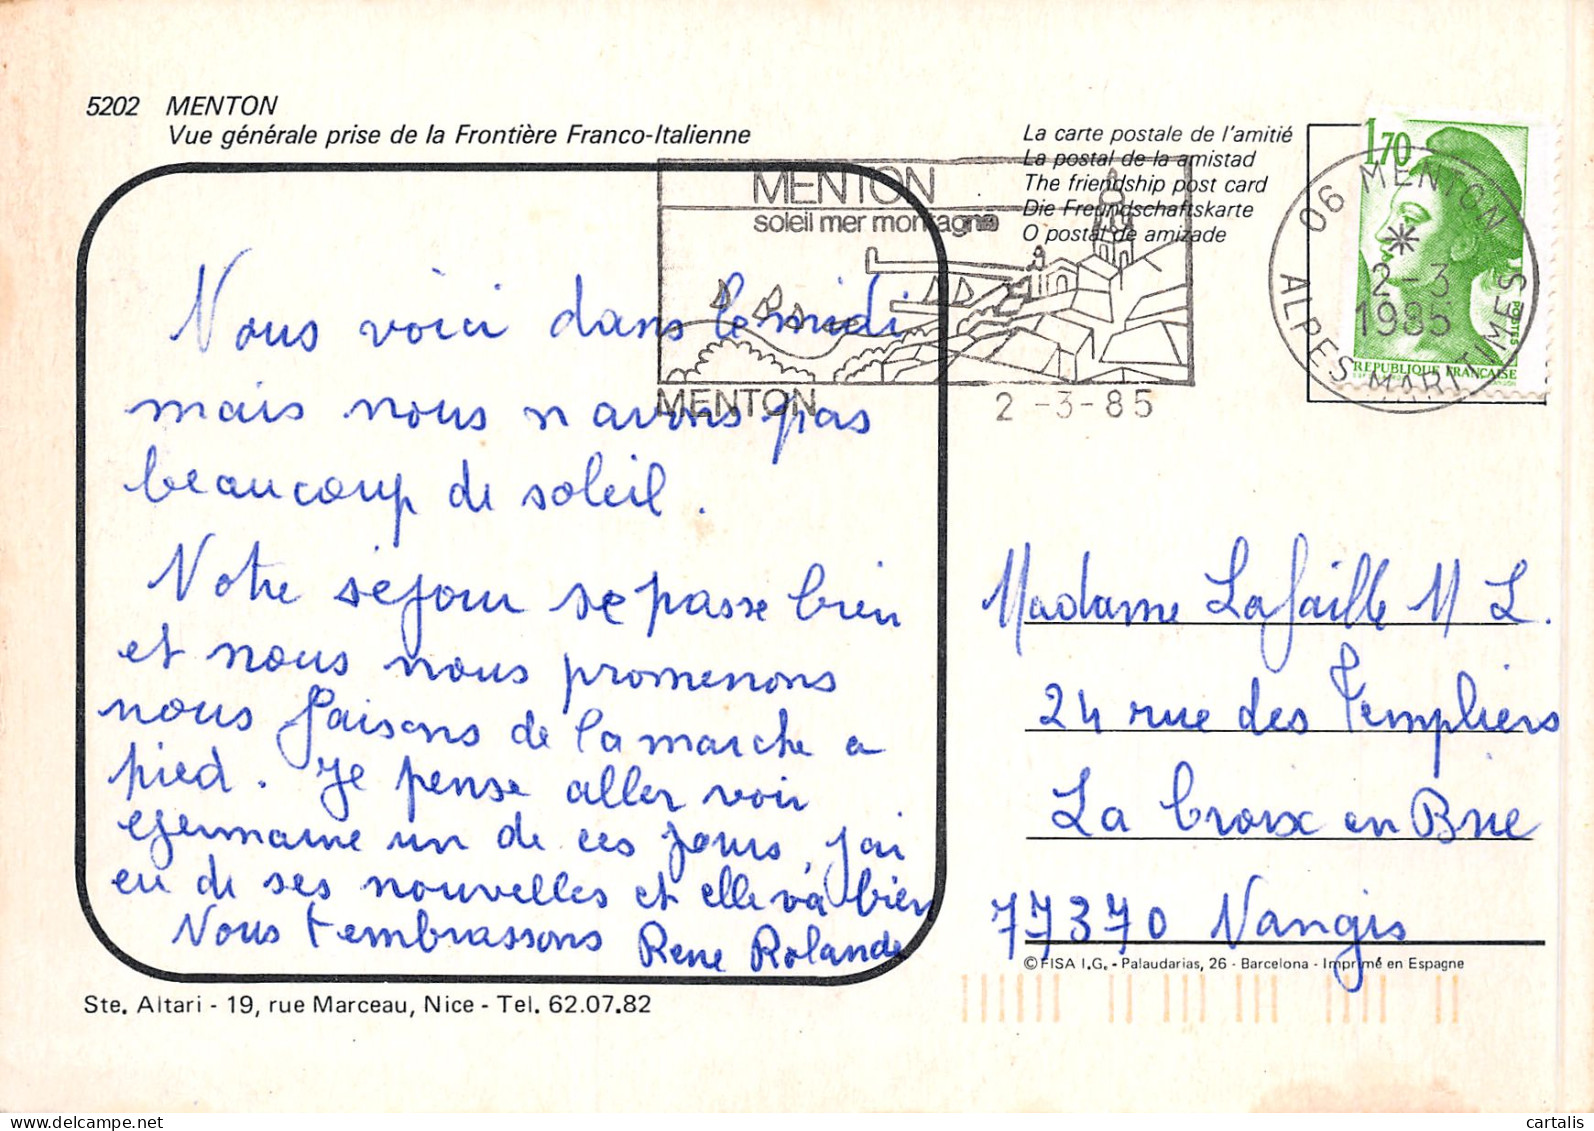 5202 MENTON
Vue générale prise de la Frontière Franco-Italienne
La carte postale de l'amitié
La postal de la amistad
The friendship post card
Die Freundschaftskarte
O postal de amizade
MENTON
soleil mer montagne
MENTON
2-3-85
1,70
06 MENTON
2-3
1985
ALPES MARITIMES
POSTES
REPUBLIQUE FRANCAISE
Nous voici dans le midi
mais nous n avons pas
beaucoup de soleil.
Notre séjour se passe bien
et nous nous promenons
nous faisons de la marche a
pied. Je pense aller voir
Germaine un de ces jours, j'ai
eu de ses nouvelles et elle va bien
Nous t embrassons Rene Rolande
Madame Lafaille M L.
24 rue des Templiers
La Croix en Brie
77370 Nangis
© FISA I.G. - Palaudarias, 26 - Barcelona - Imprimé en Espagne
Ste. Altari - 19, rue Marceau, Nice - Tel. 62.07.82
cartalis